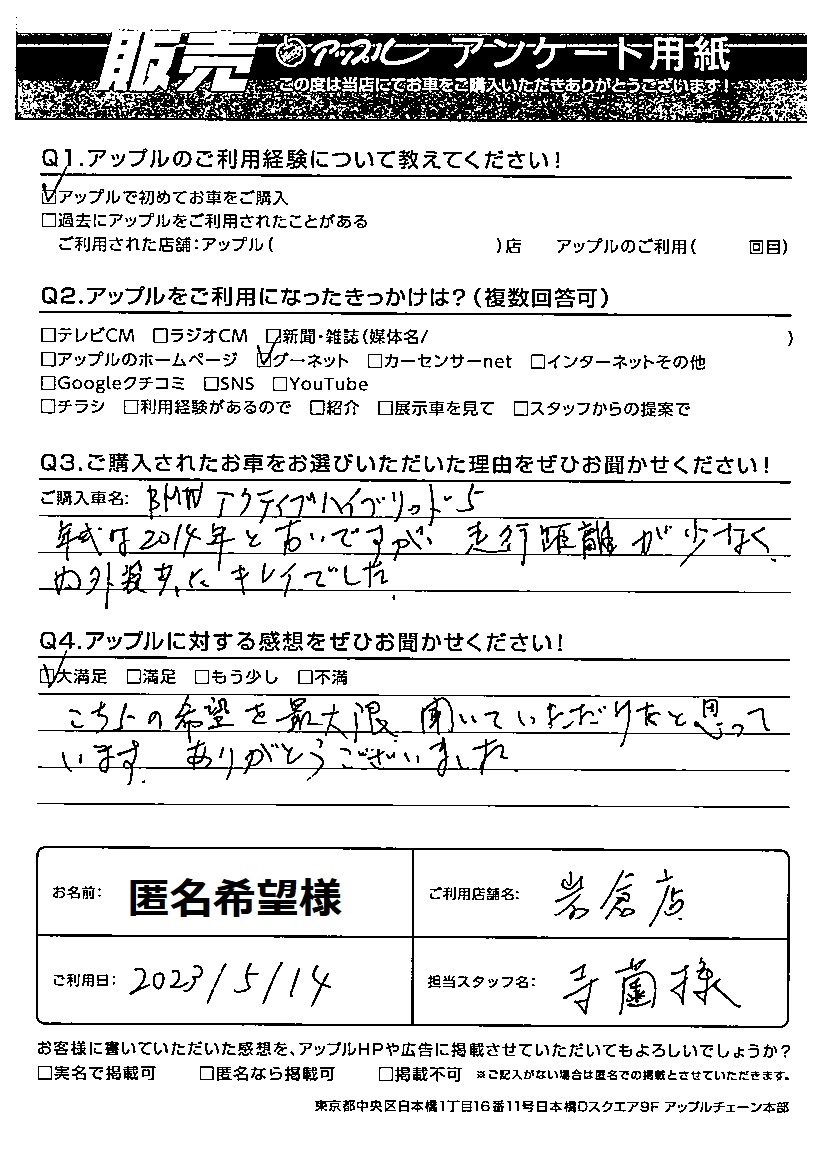 販売 アップル アンケート用紙
この度は当店にてお車をご購入いただきありがとうございます!
Q1.アップルのご利用経験について教えてください!
☑アップルで初めてお車をご購入
□過去にアップルをご利用されたことがある
ご利用された店舗:アップル( )店 アップルのご利用( 回目)
Q2.アップルをご利用になったきっかけは?(複数回答可)
□テレビCM □ラジオCM □新聞・雑誌(媒体名/ )
□アップルのホームページ ☑グーネット □カーセンサーnet □インターネットその他
□Googleクチコミ □SNS □YouTube
□チラシ □利用経験があるので □紹介 □展示車を見て □スタッフからの提案で
Q3.ご購入されたお車をお選びいただいた理由をぜひお聞かせください!
ご購入車名: BMW アクティブハイブリッド5
年式は2014年と古いですが、走行距離が少なく
内外装共にキレイでした
Q4.アップルに対する感想をぜひお聞かせください!
☑大満足 □満足 □もう少し □不満
こちらの希望を最大限聞いていただけたと思って
います。ありがとうございました
お名前: 匿名希望様 ご利用店舗名: 岩倉店
ご利用日: 2023/5/14 担当スタッフ名: 寺薗様
お客様に書いていただいた感想を、アップルHPや広告に掲載させていただいてもよろしいでしょうか?
□実名で掲載可 □匿名なら掲載可 □掲載不可 ※ご記入がない場合は匿名での掲載とさせていただきます。
東京都中央区日本橋1丁目16番11号日本橋Dスクエア9F アップルチェーン本部